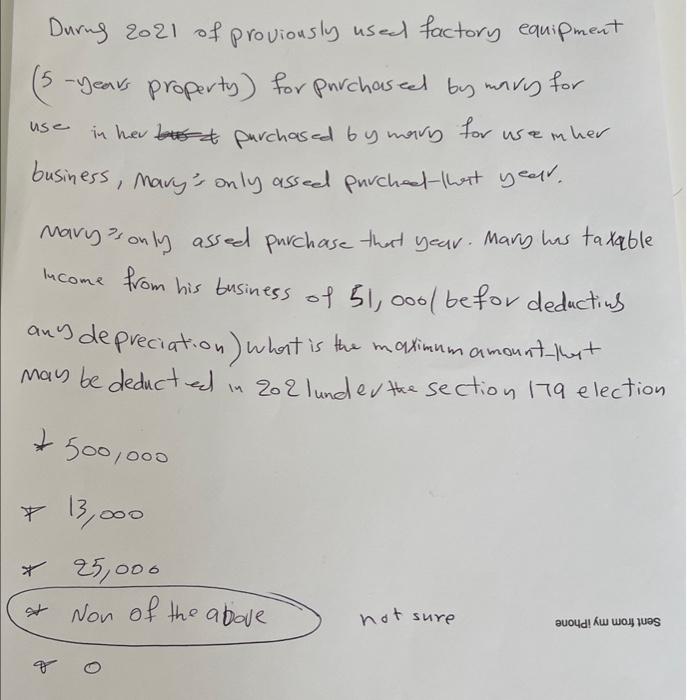 During 2021 of proviously used factory equipment
(5-years property) for purchased by mary for
use in her purchased by mary for use in her
business, Mary's only assed purched that year.
Mary's only assed purchase that year. Mary has taxable
income from his business of 51,000 (befor deducting
any depreciation) what is the maximum amount that
May be deducted in 2021 under the section 179 election
* 500,000
* 13,000
* 25,000
* Non of the above not sure
* 0
Sent from my iPhone